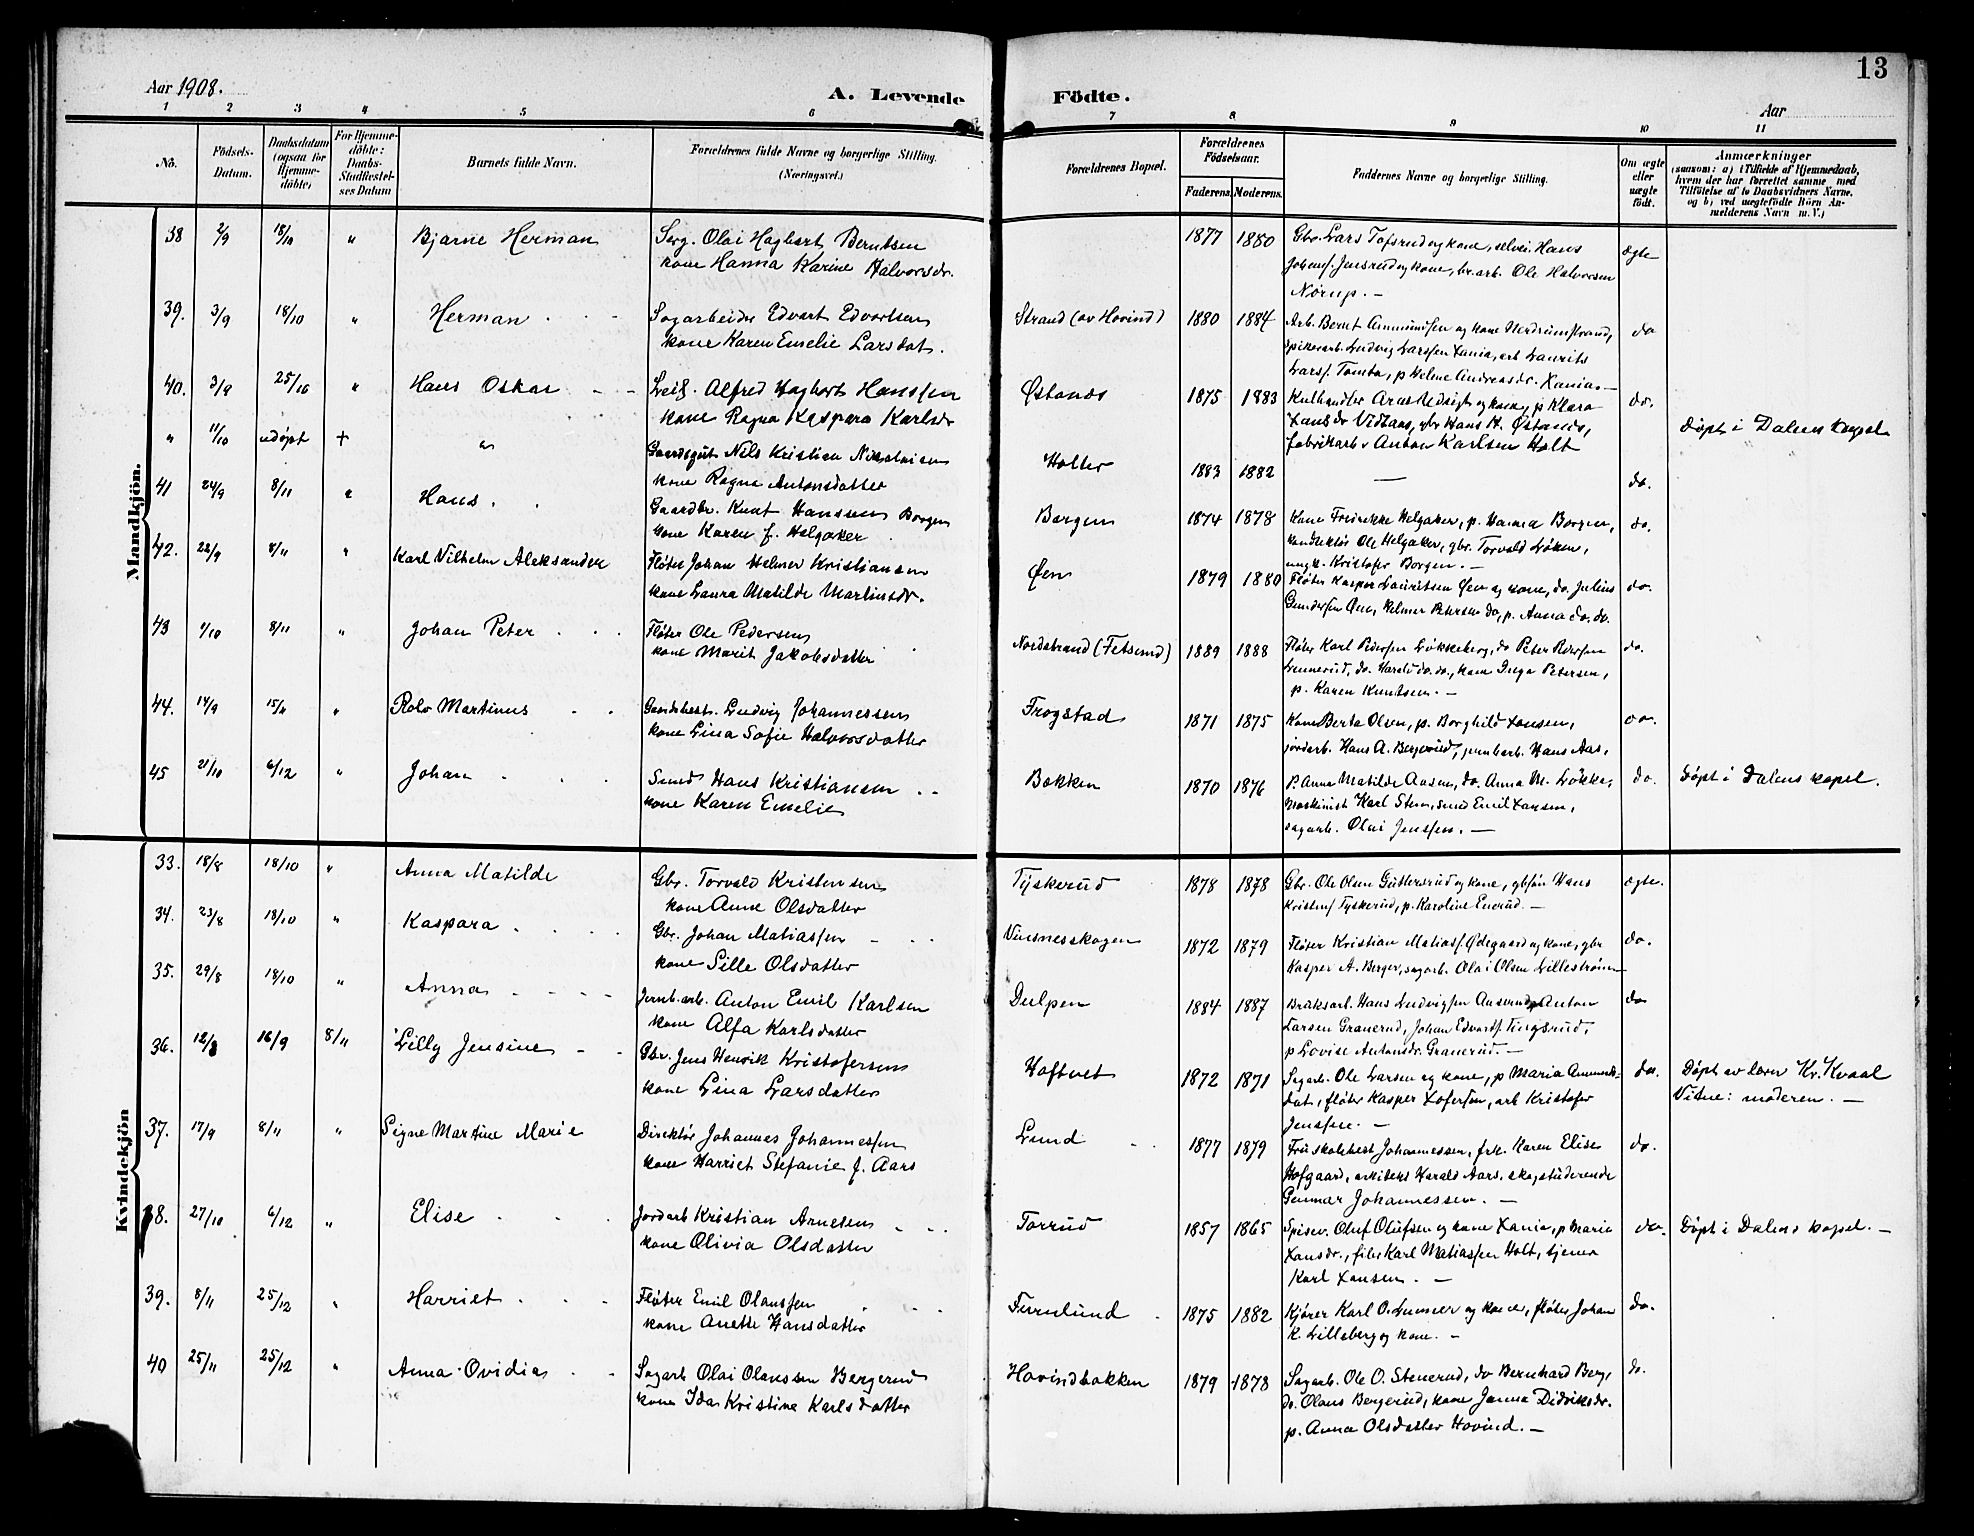 13
Aar 1908.
A. Levende Födte.
Aar
1 2 3 4 5 6 7 8 9 10 11
No.
Födsels-
Datum.
Daabsdatum
(ogsaa for
Hjemme-
döbte)
For Hjemme-
döbte:
Daabs-
Stadfæstel-
ses Datum
Barnets fulde Navn.
Forældrenes fulde Navne og borgerlige Stilling.
(Næringsvei.)
Forældrenes Bopæl.
Forældrenes
Födselsaar.
Faderens.
Moderens.
Faddernes Navne og borgerlige Stilling.
Om ægte
eller
uægte
födt.
Anmærkninger
(saasom: a) i Tilfælde af Hjemmedaab,
hvem der har forrettet samme med
Tilföielse af to Daabsvidners Navne.
og b) ved uægtefödte Börn An-
melderens Navn m. V.)
Mandkjön.
38 2/9 18/10 " Bjarne Herman
Serg. Olai Hagbart Berntsen
kone Hanna Karine Halvorsdr.
1877 1880
Gbr. Lars Tofsrud og kone, selvei. Hans
Johans. Jensrud og kone, br. arb. Ole Halvorsen
Nørup. —
ægte
39. 3/9 18/10 " Herman
Sagarbeider Edvart Edvartsen
kone Karen Emelie Larsdat.
Strand (av Hovind)
1880 1884
Arb. Bernt Ammundsen og kone Nerdrumstrand,
spikerarb. Ludvig Larssen Xania, arb Laurits
Larss. Tomta, p Helene Andreasdr. Xania. —
do
40. 3/9 25/10 " Hans Oskar
Leif. Alfred Hagbart Hanssen
kone Ragna Kaspara Karlsdr
Østands
1875 1883
Kulhandler og kone, p Klara
Xansdr Vidtans, gbr Hans H. Østands,
fabrikarb Anton Karlsen Holt
do.
Døpt i Dalens kapel
" 11/10 udøpt + "
Gaardsgut Nils Kristian Nikolaisen
kone Ragna Antonsdatter
Holter
1883 1882
—
do.
41 24/9 8/11 " Hans.
Gaardbr. Knut Hanssen Borgen
kone Karen f. Helgaker
Borgen
1874 1878
Kone Fredrikke Helgaker, p. Hanna Borgen,
konduktør Ole Helgaker, gbr. Torvald Løken,
ungk. Kristofer Borgen. —
do.
42. 22/9 8/11 " Karl Vilhelm Aleksander
Fløter Johan Helmer Kristiansen
kone Laura Matilde Martinsdr.
Øen
1879 1880
Fløter Kasper Lauritsen Øen og kone, do. Julius
Gundersen Øen, Helmer Petersen do, p. Anna do. do.
do.
43 1/10 8/11 " Johan Peter
Fløter Ole Pedersen
kone Marit Jakobsdatter
Nordstrand (Fetsund)
1889 1888
Fløter Karl Pedersen Løkkeberg, do Peter Pedersen
Lennerud, do. Harald do. do., kone Inga Petersen,
p. Karen Knutsen. —
do.
44. 14/9 15/11 " Rolv Martinus
Gaardbest. Ludvig Johannessen
kone Lina Sofie Halvorsdatter
Frogstad
1871 1875
Kone Berta Olsen, p. Borghild Xansen,
jordarb. Hans A. Bergerud, jernbarb. Hans Aas,
do.
45 21/10 6/12 " Johan
Smed Hans Kristiansen
kone Karen Emelie
Bakken
1870 1876
P. Anna Matilde Aasen, do. Anna M. Løkke,
Maskinist Karl Steen, smed Emil Xansen,
sagarb. Olai Jenssen. —
do.
Døpt i Dalens kapel.
Kvindekjön
33. 18/8 18/10 " Anna Matilde
Gbr. Torvald Kristensen
kone Anne Olsdatter
Tyskerud
1878 1878
Gbr. Ole Olsen Guttersrud og kone, gbsøn Hans
Kristens Tyskerud, p. Karoline Enerud. —
ægte.
34. 23/8 18/10 " Kaspara
Gbr. Johan Matiassen
kone Sille Olsdatter
Vinsnesskogen
1872 1879
Fløter Kristian Matiass. Ødegaard og kone, gbr
Kasper A. Berger, sagarb. Olai Olsen Lillestrømen
do.
35. 29/8 18/10 " Anna
Jernb.arb. Anton Emil Karlsen
kone Alfa Karlsdatter
Dulpen
1884 1887
Bruksarb. Hans Ludvigsen Aasrund, Anton
Larsen Granerud, Johan Edvards. Tingsrud,
p Lovise Antonsdr. Granerud. —
do
36. 12/8 16/9 8/11 Lilly Jensine
Gbr. Jens Henrik Kristofersen
kone Lina Larsdatter
Hoftvet
1872 1871
Sagarb. Ole Larsen og kone, p Maria Ammunds-
dat, fløter Kasper Xofersen, arb Kristofer
Jenssen. —
do.
Døpt av lærer Kr. Kvaal
Vidne: moderen. —
37. 17/9 8/11 " Signe Martine Marie
Direktør Johannes Johannessen
kone Harriet Stefanie f. Aars
Lund
1877 1879
Fru skolebest Johannessen, frk. Karen Elise
Hofgaard, arkitekt Harald Aars, skogstuderende
Gunnar Johannessen. —
do.
38. 27/10 6/12 " Elise
Jordarb Kristian Arnesen
kone Olivia Olsdatter
Torrud
1857 1865
Spiser. Oluf Olufsen og kone Xania, p Marie
Xansdr., filer Karl Matiassen Holt, tjener
Karl Xansen. —
do.
Døpt i Dalens kapel. —
39. 8/11 25/12 " Harriet
Fløter Emil Olaussen
kone Anette Hansdatter
Furulund
1875 1882
Kjører Karl O. Lunner og kone, fløter Johan
K. Lilleberg og kone. —
do.
40 25/11 25/12 " Anna Ovidia
Sagarb Olai Olaussen Bergerud
kone Ida Kristine Karlsdatter
Hovindbakken
1879 1878
Sagarb. Ole O. Stenerud, do Bernhard Berg,
do. Olaus Bergerud, kone Janna Didriksdr.
p. Anna Olsdatter Hovind. —
do.